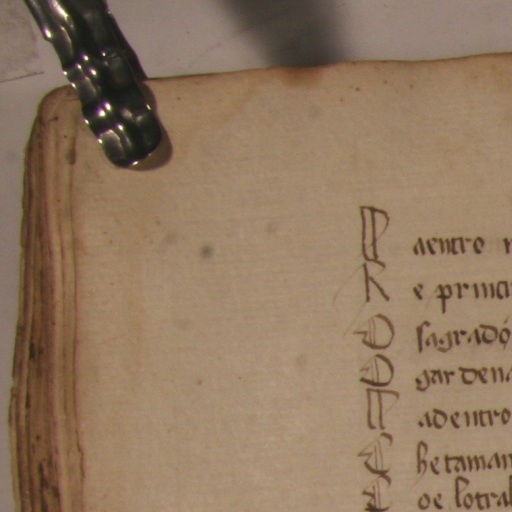 P aentro
R e princi
O sagrado
O gardena
M adentro
E hetaman
E oe lotral